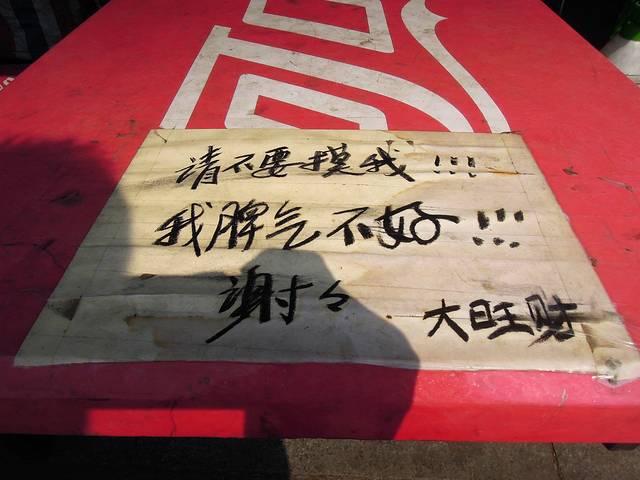 請不要摸我!!!
我脾气不好!!!
謝々 大旺财